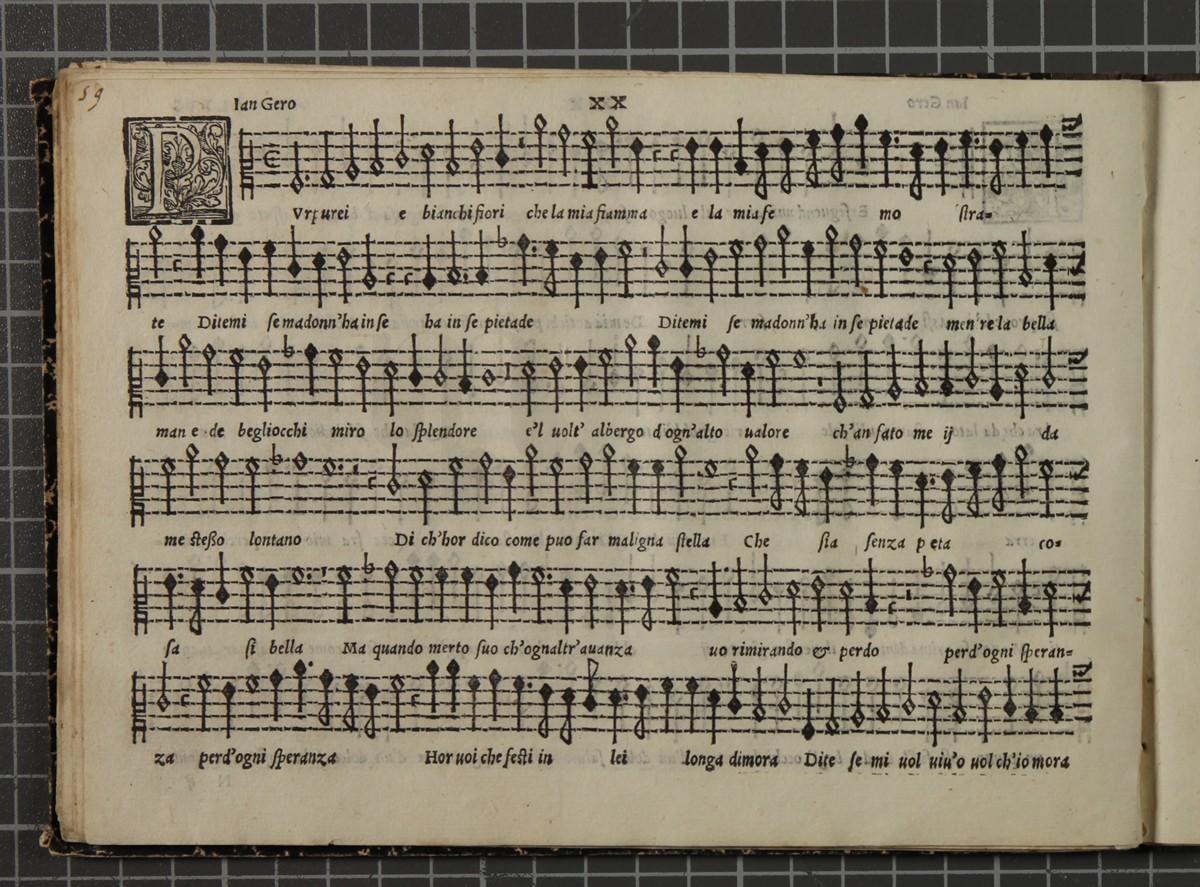 59
Ian Gero
XX
PVrpurei e bianchi fiori che la mia fiamma e la mia fe mo stra=
te Ditemi se madonn'ha in se ha in se pietade Ditemi se madonn'ha in se pietade men're la bella
man e de begliocchi miro lo splendore e'l uolt' albergo d'ogn'alto ualore ch'an fato me ij da
me steßo lontano Di ch'hor dico come puo far maligna stella Che sia senza p eta co=
sa si bella Ma quando merto suo ch'ognaltr'auanza uo rimirando & perdo perd'ogni speran=
za perd'ogni speranza Hor uoi che festi in lei longa dimora Dite se mi uol uiu'o uol ch'io mora